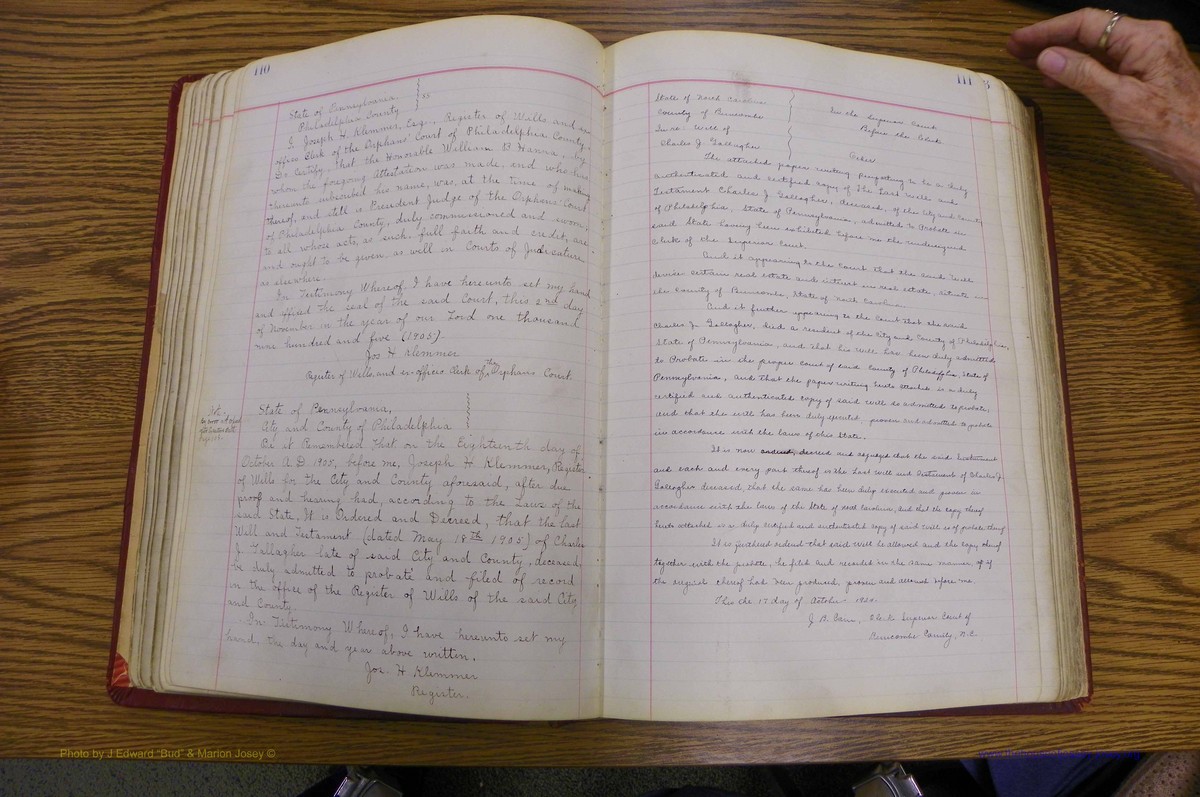 110
State of Pennsylvania
Philadelphia County } ss
I, Joseph H. Klemmer, Esq., Register of Wills and ex-
officio Clerk of the Orphans' Court of Philadelphia County,
Do certify, that the Honorable William B Hanna, by
whom the foregoing Attestation was made, and who has
thereunto subscribed his name, was, at the time of making
thereof, and still is President Judge of the Orphans' Court
of Philadelphia County, duly commissioned and sworn,
to all whose acts, as such, full faith and credit, are
and ought to be given, as well in Courts of Judicature
as elsewhere.
In Testimony Whereof, I have hereunto set my hand
and affixed the seal of the said Court, this 2nd day
of November in the year of our Lord one thousand
nine hundred and five (1905).
Jos H Klemmer
Register of Wills and ex-officio Clerk of The Orphans Court
State of Pennsylvania,
City and County of Philadelphia
Be it Remembered that on the Eighteenth day of
October A D 1905, before me, Joseph H Klemmer, Register
of Wills for the City and County aforesaid, after due
proof and hearing had, according to the Laws of the
said State, It is Ordered and Decreed, that the last
Will and Testament (dated May 18th 1905) of Charles
J. Gallagher late of said City and County, deceased,
be duly admitted to probate and filed of record
in the office of the Register of Wills of the said City
and County.
In Testimony Whereof, I have hereunto set my
hand, the day and year above written.
Jos. H Klemmer
Register.
111
State of North Carolina
County of Buncombe
In the Superior Court
Before the Clerk
In re: Will of
Charles J. Gallagher
Order
The attached paper writing purporting to be a duly
authenticated and certified copy of the Last Will and
Testament Charles J. Gallagher, deceased, of the City and County
of Philadelphia, State of Pennsylvania, admitted to Probate in
said State having been exhibited before me the undersigned
Clerk of the Superior Court.
And it appearing to the Court that the said Will
devises certain real estate and interest in real estate, situate in
the County of Buncombe, State of North Carolina
And it further appearing to the Court that the said
Charles J. Gallagher, died a resident of the City and County of Philadelphia,
State of Pennsylvania, and that his will has been duly admitted
to Probate in the proper Court of said County of Philadelphia, State of
Pennsylvania, and that the paper writing hereto attached is a duly
certified and authenticated copy of said will as admitted to probate;
and that the will has been duly executed, proven and admitted to probate
in accordance with the laws of this State.
It is now ordered, decreed and adjudged that the said Instrument
and each and every part thereof is the Last Will and Testament of Charles J.
Gallagher deceased, that the same has been duly executed and proven in
accordance with the laws of the State of North Carolina, and that the copy thereof
hereto attached is a duly certified and authenticated copy of said will as of probate thereof
It is further ordered that said Will be allowed and the copy thereof
together with the probate, be filed and recorded in the same manner as if
the original thereof had been produced, proven and allowed before me.
This the 17 day of October
J. B. Cain, Clerk Superior Court of
Buncombe County, N.C.
Photo by J Edward "Bud" & Marion Josey ©